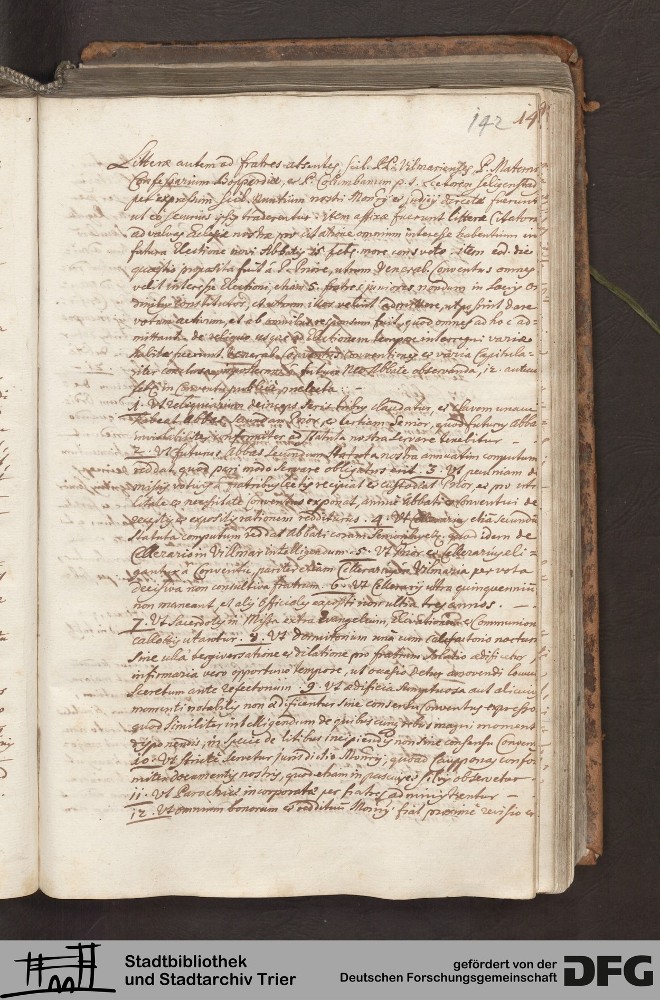 142 14
Litteræ autem ad fratres absentes, scil. PP. Vilmarienses, P. Maternum
Confessarium Boppardiæ, et P. Columbanum p. t. Lectorem Seligenstad
per expressum scil. nuntium nostri Monrÿ et Judicÿ directæ fuerunt
ut eo securius ipsis traderentur. Item affixæ fuerunt litteræ Citatoriæ
ad valvas Eclesiæ nostræ pro citatione omnium interesse habentium in
futura Electione novi Abbatis 15 febr. more consueto. item eod. die
quæstio proposita fuit à P. Priore, utrum Venerab. Conventus omnes
velit interesse Electioni, etiam 5 fratres juniores nondum in sacris or
dinibus constitutos, et utrum illos velint admittere, ut possint dare
votum activum, et ab omnibus responsum fuit, quod omnes ad hoc ad-
mittantur. de reliquo usque ad Electionem tempore interregni variæ
habitæ fuerunt Venerab. Conventus conventiones et varia Capitula-
riter conclusa a futuro Rdo Abbate observanda, 12. autem
febr. in Conventu publicè prælecta:
1. Ut reliquiarium deinceps seris tribus claudatur, et clavem unam
habeat Abbas, secundam Prior, et tertiam Senior, quod futurus Abbas
inviolabiliter conformiter ad statuta nostra servare tenebitur –
2. Ut futurus Abbas secundum statuta nostra annuatim computum
reddat, quod pari modo servare obligatus erit. 3. Ut pecuniam de
missis votivis à patribus lectis recipiat et custodiat Prior, et pro uti
litate et necessitate Conventus exponat, annue Abbati et Conventui de
receptis et expositis rationem redditurus. 4. Ut Cellerarius etiam secundum
statuta computum reddat Abbati coram Senioribus, quod idem de
Cellerario in Villmar intelligendum. 5. Ut Prior et Cellerarius eli-
gantur à Conventu, pariter etiam Cellerarius in Vilmaria per vota
decisiva non consultiva fratrum. 6. Ut Cellerarÿ ultra quinquennium
non maneant, et alÿ Officiales expositi non ultra tres annos. –
7. Ut sacerdotes in Missa extra Evangelium, Elevationem et Communion
callottis utantur. 8. Ut dormitorium unà cum calefactorio noctur
sine ulla tergiversatione et dilatione pro fratrum solatio ædificetur,
infirmaria vero opportuno tempore, ut occasio detur amovendi locum
secretum ante refectorium. 9. Ut ædificia sumptuosa aut alicuius
momenti notabilis non ædificentur sine consensu Conventus expresso
quod similiter intelligendum de quibuscunque rebus magni momenti
exponendis, in specie de litibus incipiendis non sine consensu Conven
10. Ut strictè servetur jurisdictio Monrÿ, quoad confor
miter documentis nostris, quod etiam in pascuis observetur
11. Ut Parochiæ incorporatæ per fratres administrentur –
12. Ut omnium bonorum et reddituum Monrÿ fiat proximè revisio et
Stadtbibliothek
und Stadtarchiv Trier
gefördert von der
Deutschen Forschungsgemeinschaft
DFG